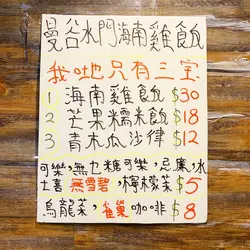 曼谷水門海南雞飯
我哋只有三宝
1 海南雞飯 $30
2 芒果糯米飯 $18
3 青木瓜沙律 $12
可樂,無乜糖可樂,忌廉,水
士喜 無雪碧,檸檬茶 $5
烏龍茶,雀巢咖啡 $8